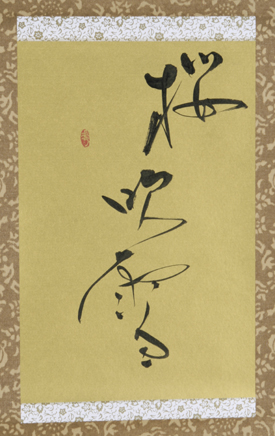 桜吹雪